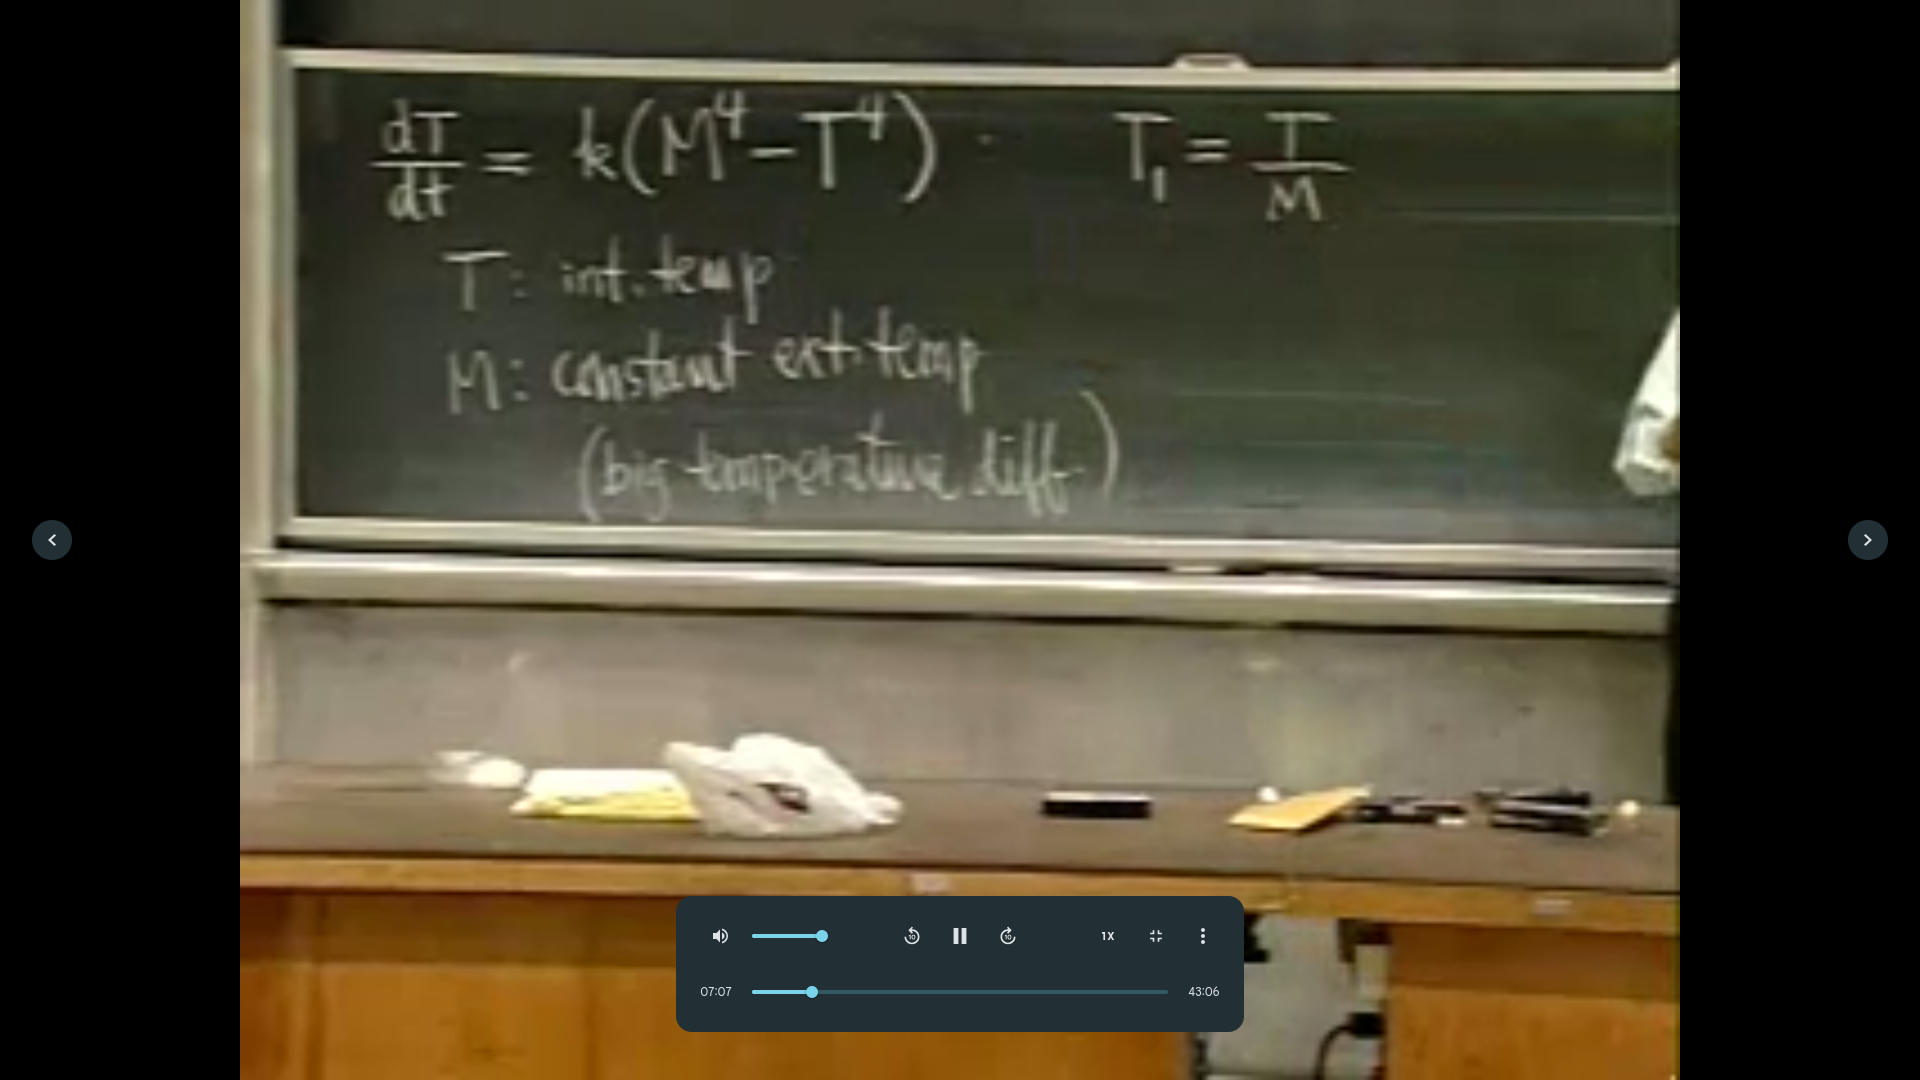 dT/dt = k(M⁴ − T⁴) · T₁ = T/M
T: int. temp
M: constant ext. temp
(big temperature diff.)
1X
07:07 43:06